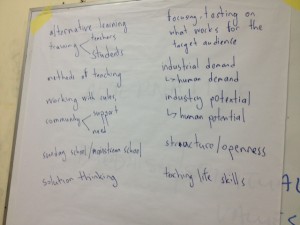 alternative learning
training
teachers
students
methods of teaching
working with
community
support
need
sunday school/mainstream school
solution thinking
focusing, testing on
what works for the
target audience
industrial demand
↳ human demand
industry potential
↳ human potential
structure/openness
teaching life skills